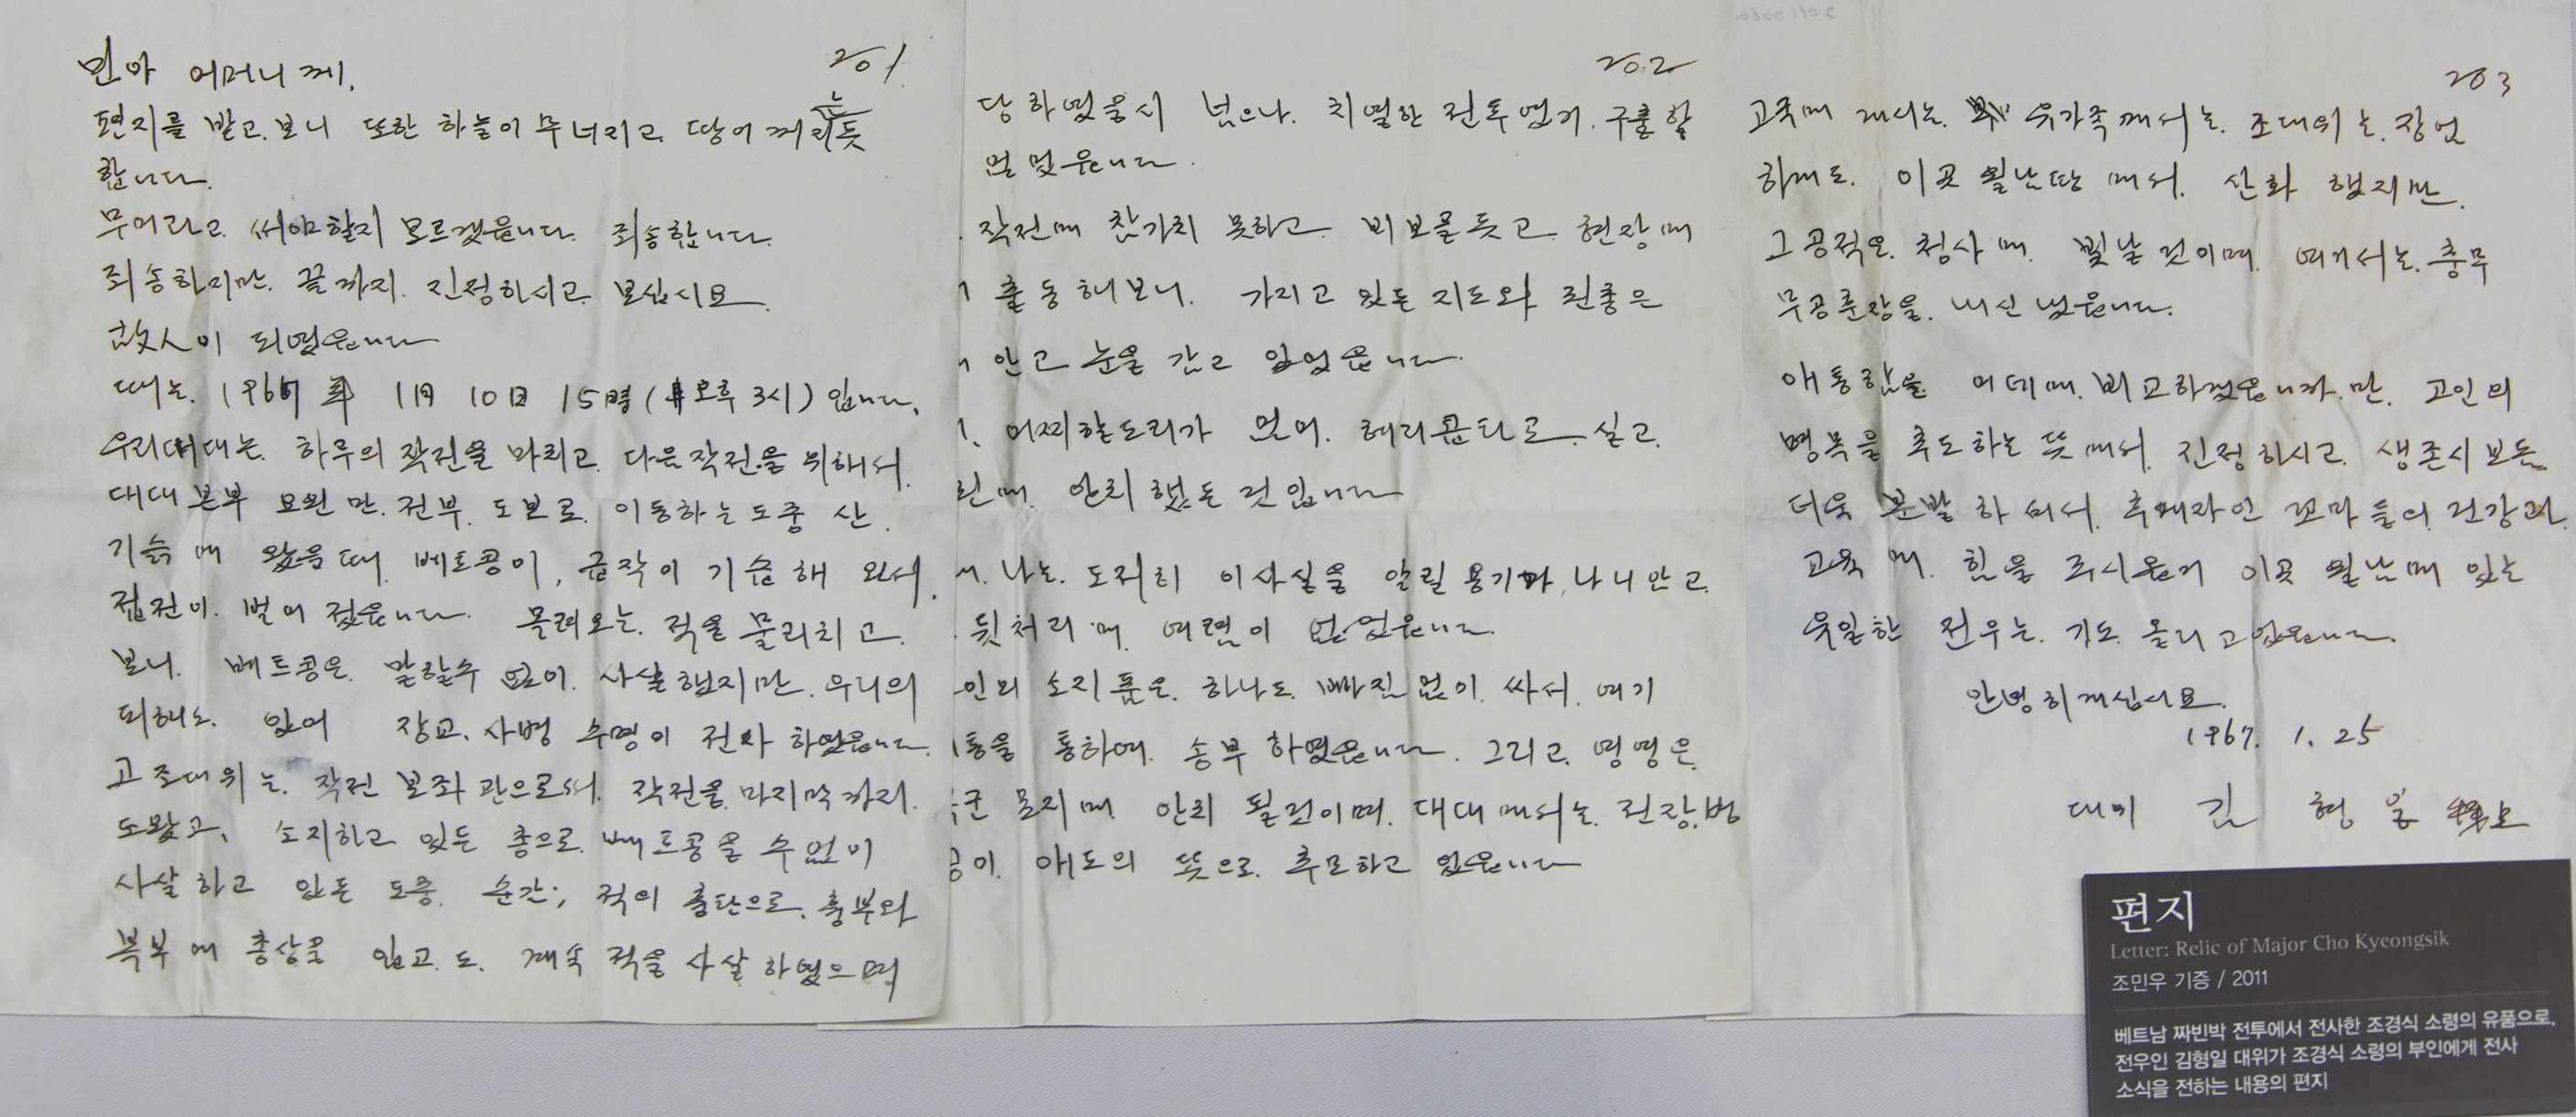 민아 어머니께.
201
편지를 받고.보니 또한 하늘이 무너지고. 땅이 꺼지는듯
합니다.
무어라고. 써야할지 모르겠읍니다. 죄송합니다.
죄송하지만. 끝까지. 진정하시고. 보십시요.
故人이 되였읍니다
때는. 1967 年 1月 10日 15時 (오후 3시) 입니다.
우리대대는. 하루의 작전을 마치고. 다음작전.을 위해서.
대대 본부 요원 만. 전부. 도보로. 이동하는 도중 산.
기슭에 왔을때. 베트콩이, 급작이 기습해 와서.
접전이. 벌어 졌읍니다. 몰려오는. 적을 물리치고.
보니. 베트콩은. 말할수 없이. 사살했지만. 우리의
피해도. 있어 장교. 사병 수명이 전사 하였읍니다.
고 조대위는. 작전 보좌관으로써. 작전을. 마지막까지.
도왔고. 소지하고 있든 총으로. 베트콩을 수없이
사살하고 있든 도중. 순간, 적의 총탄으로. 흉부와
복부에 총상을 입고.도. 계속 적을 사살하였으며
202
당하였을시 넜으나. 치열한 전투였기. 구출할
없었읍니다.
작전에 참가치 못하고. 비보를듯고. 현장에
출동해보니. 가지고 있든 지도와 권총은
안고 눈을 감고 있었읍니다.
어찌할도리가 없어. 헤리콥타로. 싣고.
안치했든 것입니다
나는. 도저히 이사실을 알릴 용기가. 나니안고.
뒷처리에. 여렴이 없었읍니다.
인의 소지품은. 하나도. 빠짐없이. 싸서. 여기
통을 통하여. 송부하였읍니다. 그리고. 영영은.
군 묘지에 안치 될것이며. 대대에서는. 전장.병
이. 애도의 뜻으로. 추모하고 있읍니다
203
고국에 계시는. 유가족께서는. 조대위는. 장엄
하게도. 이곳 월남땅에서. 산화 했지만.
그공적은. 청사에. 빛날것이며. 여기서는. 충무
무공훈장을. 내신 냈읍니다.
애통함을. 어데에. 비교하겠읍니까.만. 고인의
명복을 추도하는 뜻에서. 진정하시고. 생존시 보든
더욱 분발 하셔서. 후계자인 꼬마들의. 건강과.
교육에. 힘을 주시옵기 이곳 월남에 있는
유일한 전우는. 기도. 올리고있읍니다.
안녕히계십시요.
1967. 1. 25
대위 김 형 일
편지
Letter: Relic of Major Cho Kyeongsik
조민우 기증 / 2011
베트남 짜빈박 전투에서 전사한 조경식 소령의 유품으로,
전우인 김형일 대위가 조경식 소령의 부인에게 전사
소식을 전하는 내용의 편지